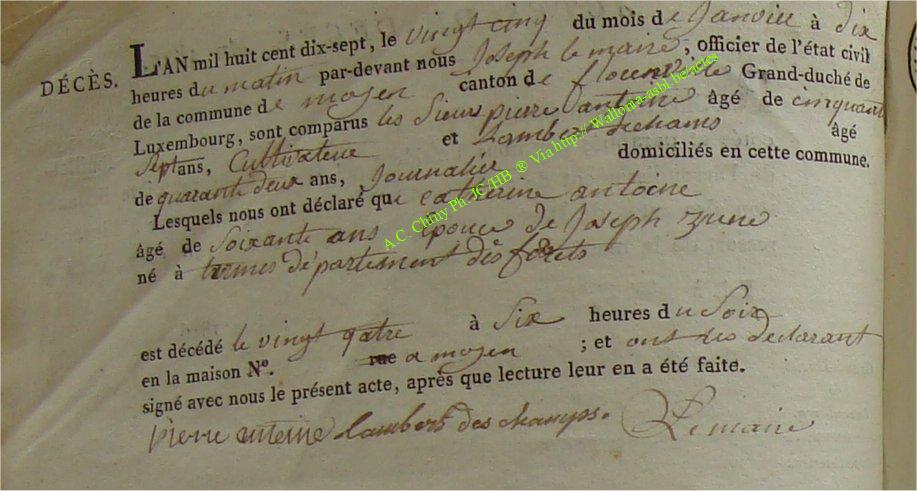 DÉCÈS.
L'AN mil huit cent dix-sept, le vingt cinq du mois de Janvier à dix
heures du matin par-devant nous Joseph le maire, officier de l'état civil
de la commune de moyen canton de florenville Grand-duché de
Luxembourg, sont comparus les Sieurs pierre antoine âgé de cinquant
Sept ans, Cultivateur et Lambert dechams âgé
de quarante deux ans, Journalier domiciliés en cette commune.
Lesquels nous ont déclaré que catherine antoine
âgé de Soixante ans épouce de Joseph zune
né à termes département dès forets
est décédé le vingt qatre à Six heures du Soir
en la maison N°. rue a moyen ; et ont les déclarant
signé avec nous le présent acte, après que lecture leur en a été faite.
pierre entoine lambert des champs. Lemaire
A.C. Chiny Ph. JC/HB ® Via http://Wallonia-asbl.be/actes